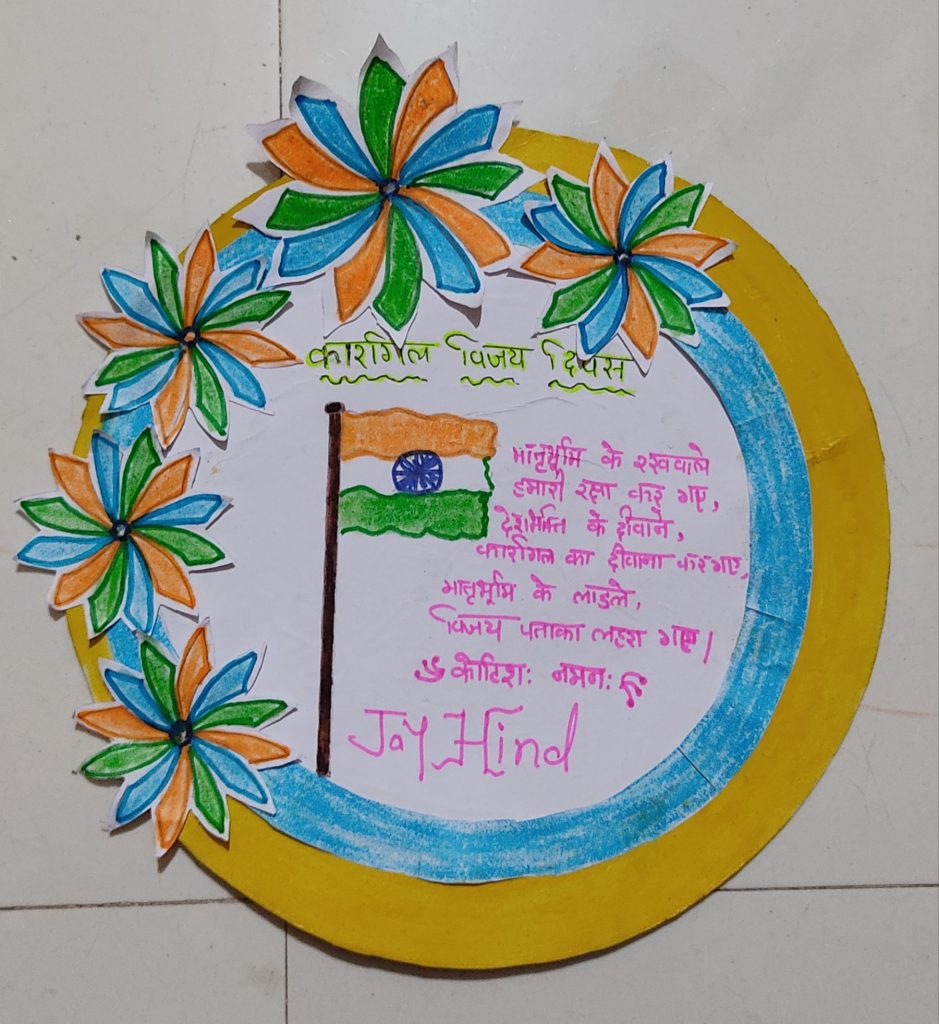 कारगिल विजय दिवस
मातृभूमि के रखवाले
हमारी रक्षा कर गए,
देशभक्ति के दीवाने,
कारगिल का दीवाना कर गए,
मातृभूमि के लाडले,
विजय पताका लहरा गए।
कोटिशः नमनः
Jay Hind